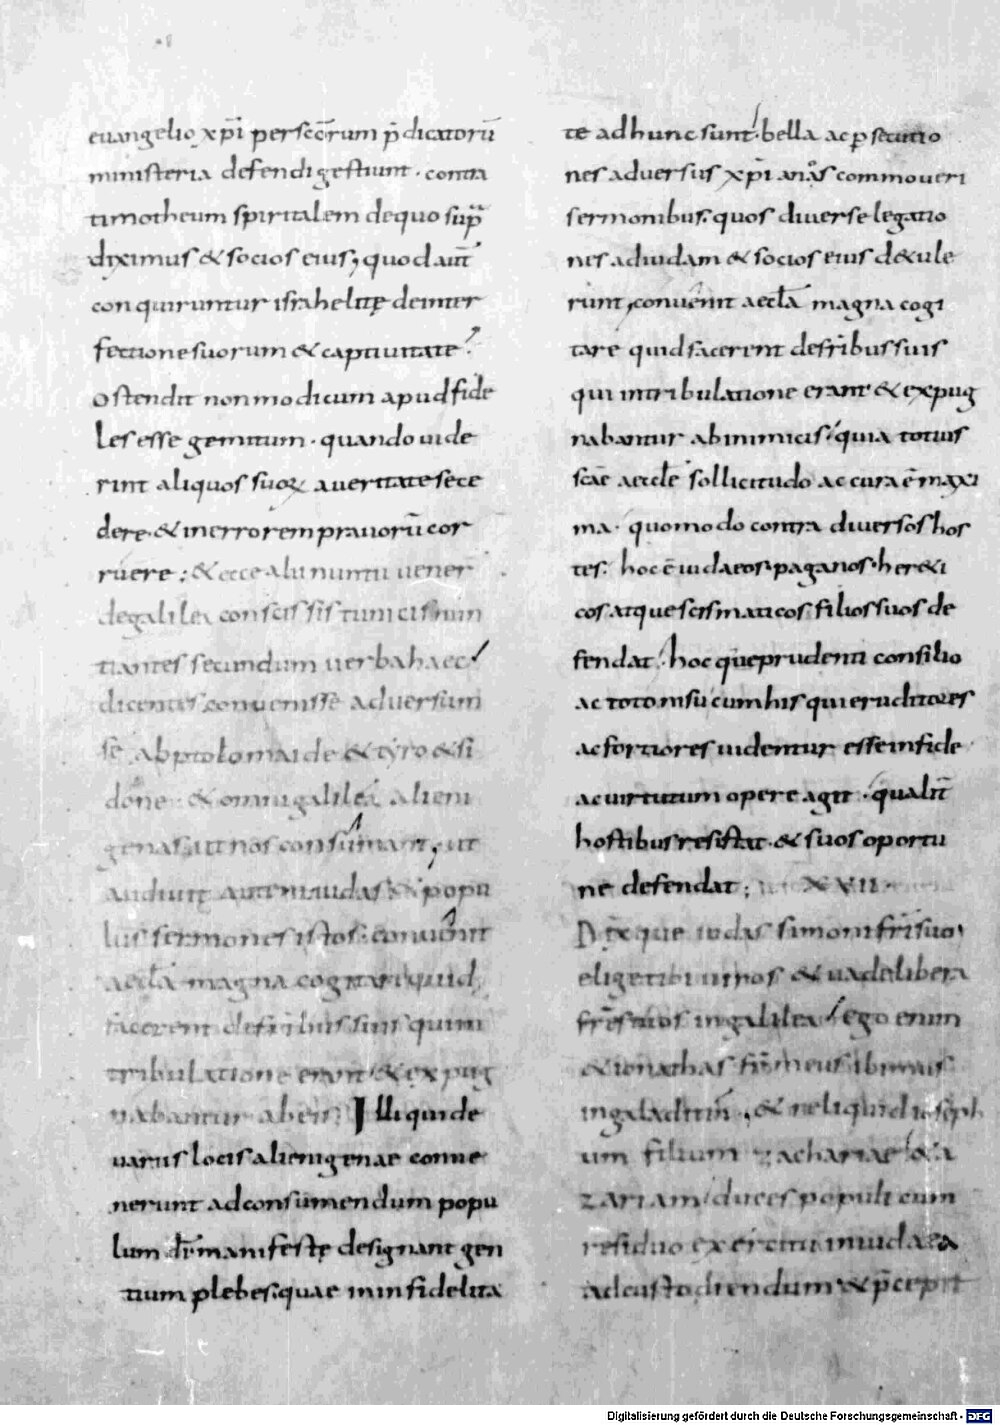 euangelio xp̄i per sc̄orum p̄dicatorū
ministeria defendi gestiunt · contra
timotheum spiritalem de quo sup̄
diximus & socios eius, quod aūt
conquiruntur israhelitę de inter
fectione suorum & captiuitate ?
ostendit non modicum apud fide
les esse gemitum · quando uide
rint aliquos suoꝝ a ueritate sece
dere · & in errorem prauorū cor
ruere ; & ecce alii nuntii uener̄
de galilea conscissis tunicis nun
tiantes secundum uerba haec
dicentes conuenisse aduersum
se ab ptolomaide & tyro & si
done · & omni galilea alieni
genas ut nos consūmant, ut
audiuit autem iudas & popu
lus sermones istos · conuenit
aeccła magna cogitare quid
facerent de frībus suis qui in
tribulatione erant & expug
nabantur ab eis Illi qui de
uariis locis alienigenae conue
nerunt ad consumendum popu
lum dn̄i manifestę designant gen
tium plebes · quae in infidelita
te ad hunc sunt · bella ac p̱secutio
nes aduersus xp̄i an̄as commoueri
sermonibus · quos diuerse legatio
nes ad iudam & socios eius d&ule
runt, conuēnit aeccła magna cogi
tare quid facerent de frībus suis
qui in tribulatione erant & expug
nabantur ab inimicis · quia totius
sc̄ae aeccłe sollicitudo ac cura ē maxi
ma · quomodo contra diuersos hos
tes · hoc ē iudaeos · paganos · her&i
cos atque scismaticos filios suos de
fendat · hocque prudenti consilio
ac toto nisu cum his qui eruditiores
ac fortiores uidentur esse in fide
ac uirtutum opere agit · qualit̄
hostibus resistat · & suos oportu
ne defendat ; XVII ·
Dixque iudas simoni frī suo
elige tibi uiros & uade libera
frēs tuos in galilea ego enim
& ionathas fr̄ meus ibimus
in galaditin, & reliquid ioseph
um filium zachariae & a
zariam duces populi cum
residuo exercitu in iudaea
ad custodiendum & p̄cepit